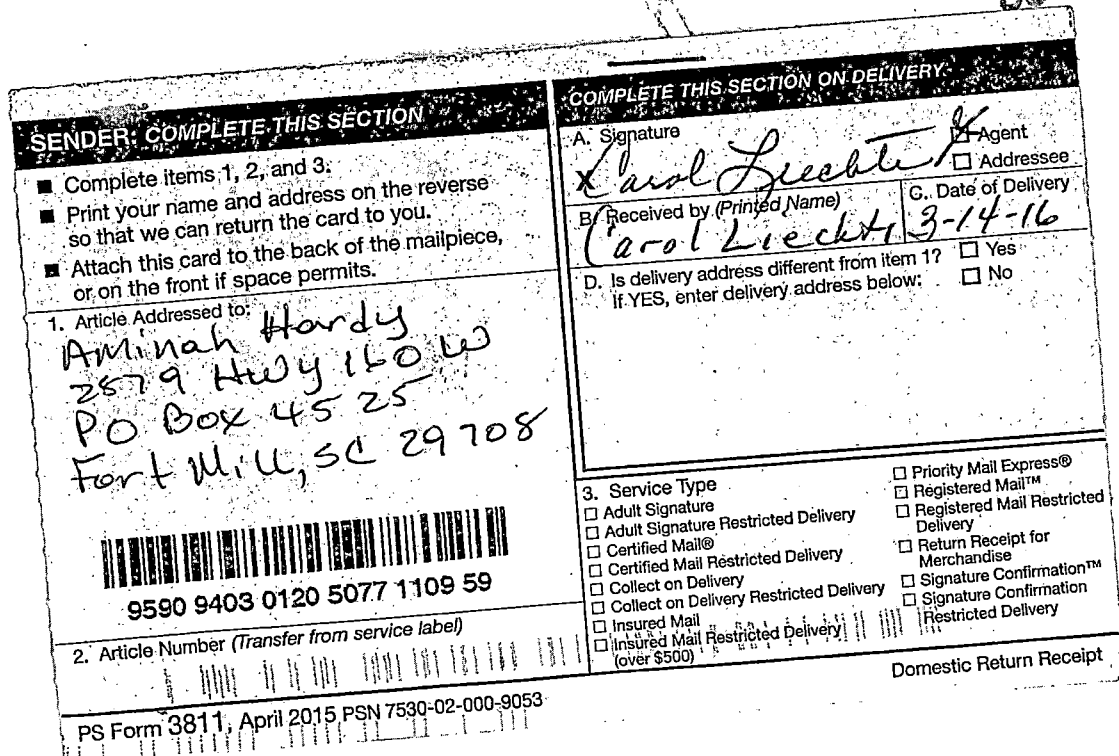 SENDER: COMPLETE THIS SECTION
■ Complete items 1, 2, and 3.
■ Print your name and address on the reverse
so that we can return the card to you.
■ Attach this card to the back of the mailpiece,
or on the front if space permits.
1. Article Addressed to:
AMinah Hardy
2879 Hwy 160 W
PO Box 4525
Fort Mill, SC 29708
9590 9403 0120 5077 1109 59
2. Article Number (Transfer from service label)
PS Form 3811, April 2015 PSN 7530-02-000-9053
COMPLETE THIS SECTION ON DELIVERY
A. Signature
X Carol Liechti
☒ Agent
☐ Addressee
B. Received by (Printed Name)
Carol Liechti
C. Date of Delivery
3-14-16
D. Is delivery address different from item 1? ☐ Yes
If YES, enter delivery address below: ☐ No
3. Service Type
☐ Adult Signature
☐ Adult Signature Restricted Delivery
☐ Certified Mail®
☐ Certified Mail Restricted Delivery
☐ Collect on Delivery
☐ Collect on Delivery Restricted Delivery
☐ Insured Mail
☐ Insured Mail Restricted Delivery
(over $500)
☐ Priority Mail Express®
☐ Registered Mail™
☐ Registered Mail Restricted
Delivery
☐ Return Receipt for
Merchandise
☐ Signature Confirmation™
☐ Signature Confirmation
Restricted Delivery
Domestic Return Receipt